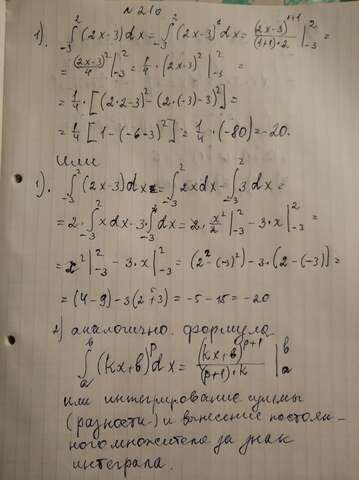 №210
1). ∫₋₃² (2x-3)dx = ∫₋₃² (2x-3)¹dx = (2x-3)¹⁺¹/((1+1)·2) |₋₃² =
= (2x-3)²/4 |₋₃² = 1/4 · (2x-3)² |₋₃² =
= 1/4 · [(2·2-3)² - (2·(-3)-3)²] =
= 1/4 [1-(-6-3)²] = 1/4 · (-80) = -20.
Или
1). ∫₋₃² (2x-3)dx = ∫₋₃² 2xdx - ∫₋₃² 3dx =
= 2·∫₋₃² xdx - 3·∫₋₃² dx = 2·x²/2 |₋₃² - 3·x |₋₃² =
= x² |₋₃² - 3·x |₋₃² = (2²-(-3)²) - 3·(2-(-3)) =
= (4-9) - 3(2+3) = -5-15 = -20
2) аналогично. формула
∫ₐᵇ (kx+b)ᵖdx = (kx+b)ᵖ⁺¹/((p+1)·k) |ₐᵇ
или интегрирование суммы
(разности) и вынесение постоян-
ного множителя за знак
интеграла.